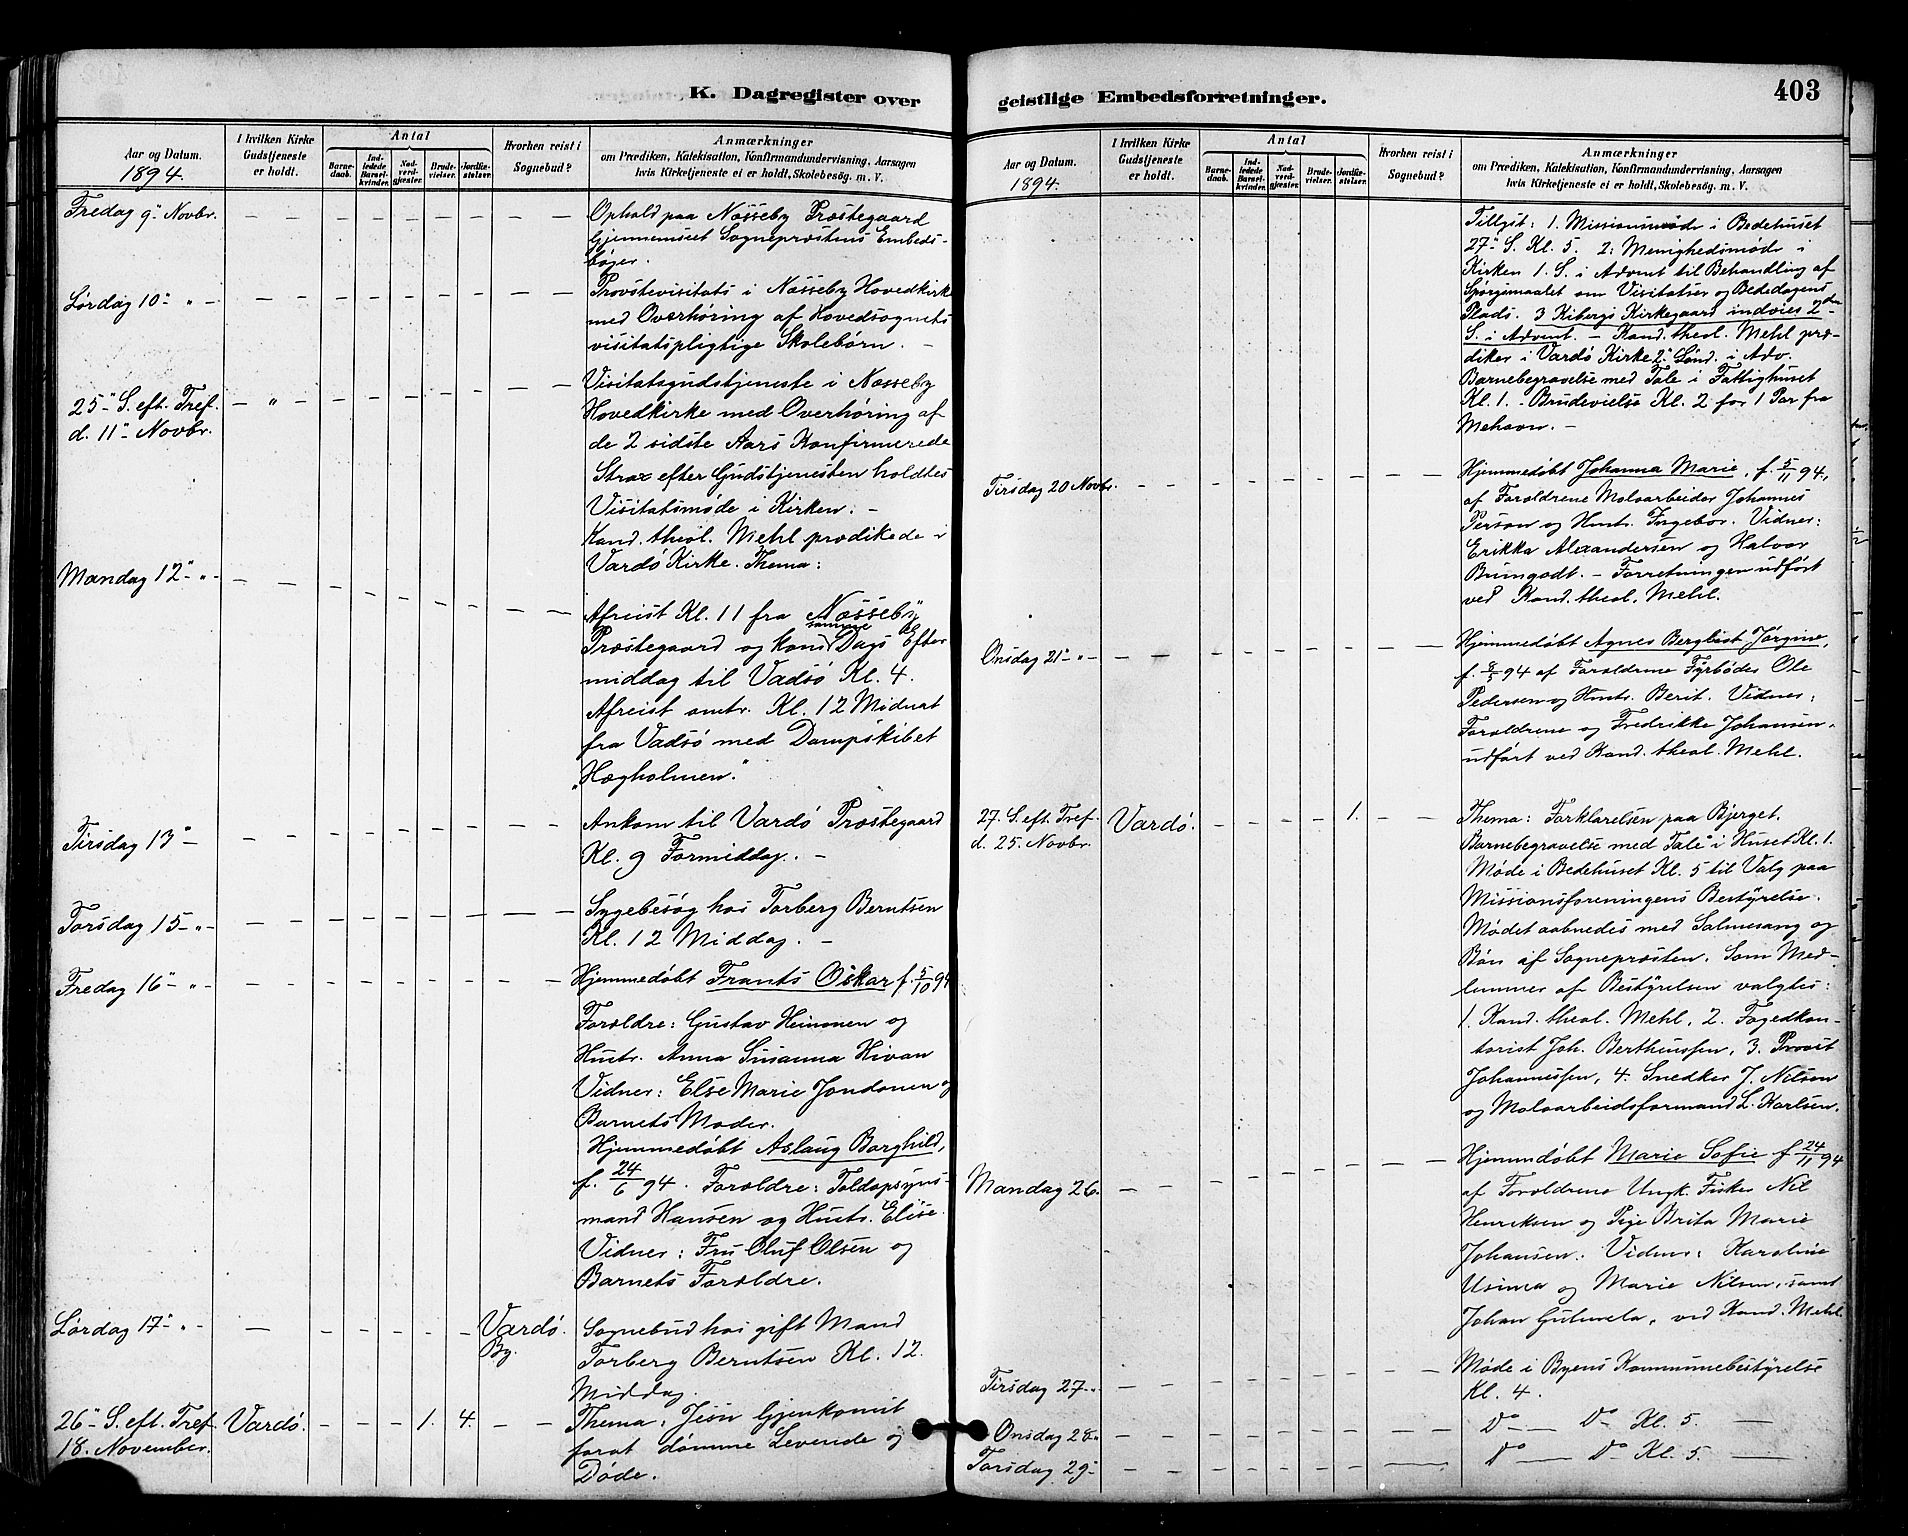 K. Dagregister over
Aar og Datum.
1894.
I hvilken Kirke
Gudstjeneste
er holdt.
Antal
Barne-
daab.
Ind-
ledede
Barsel-
kvinder.
Nad-
verd-
gjester.
Brude-
vielser.
Jordfæ-
stelser.
Hvorhen reist i
Sognebud?
Anmærkninger
om Prædiken, Katekisation, Konfirmandundervisning, Aarsagen
hvis Kirketjeneste ei er holdt, Skolebesøg. m. V.
Fredag 9" Novbr.
Ophold paa Næsseby Præstegaard
Gjennemseet Sognepræstens Embeds-
bøger.
Lørdag 10" "
Provstevisitats i Næsseby Hovedkirke
med Overhøring af Hovedsognets
visitatspligtige Skolebørn. –
25" S. eft. Tref.
d. 11" Novbr.
"
Visitatsgudstjeneste i Næsseby
Hovedkirke med Overhøring af
de 2 sidste Aars Konfirmerede
Strax efter Gudstjenesten holdtes
Visitatsmøde i Kirken. –
Kand. theol. Mehl prædikede i
Vardø Kirke. Thema:
Mandag 12" "
Afreist Kl. 11 fra Næsseby
Præstegaard og kom samme Dags Efter
middag til Vadsø Kl. 4.
Afreist omtr. Kl. 12 Midnat
fra Vadsø med Dampskibet
"Høgholmen."
Tirsdag 13"
Ankom til Vardø Præstegaard
Kl. 9 Formiddag. –
Torsdag 15 "
Sygebesøg hos Torberg Berntsen
Kl. 12 Middag. –
Fredag 16" "
Hjemmedøbt Frants Oskar f. 5/10 94
Forældre: Gustav Heinonen og
Hustr. Anna Susanna Hivan
Vidner: Else Marie Jondonen og
Barnets Moder.
Hjemmedøbt Aslaug Borghild,
f. 24/6 94. Forældre: Toldopsyns-
mand Hansen og Hustr. Elise.
Vidner: Fru Oluf Olsen og
Barnets Forældre.
Lørdag 17" "
Vardø
By.
Sognebud hos gift Mand
Torberg Berntsen Kl. 12.
Middag.
26" S. eft. Tref.
18. November.
Vardø.
1. 4.
Thema: Jesu Gjenkomst
forat dømme Levende og
Døde.
geistlige Embedsforretninger.
403
Aar og Datum.
1894.
I hvilken Kirke
Gudstjeneste
er holdt.
Antal
Barne-
daab.
Ind-
ledede
Barsel-
kvinder.
Nad-
verd-
gjester.
Brude-
vielser.
Jordfæ-
stelser.
Hvorhen reist i
Sognebud?
Anmærkninger
om Prædiken, Katekisation, Konfirmandundervisning, Aarsagen
hvis Kirketjeneste ei er holdt, Skolebesøg. m. V.
Tillyst: 1. Missionsmøde i Bedehuset
27" S. Kl. 5. 2. Menighedsmøde i
Kirken 1. S. i Advent til Behandling af
Spørgsmaalet om Visitatser og Bededagens
Plads. 3 Kibergs Kirkegaard indvies 2den
S. i Advent. – Kand. theol. Mehl præ-
diker i Vardø Kirke 2" Sønd. i Adv.
Barnebegravelse med Tale i Fattighuset
Kl. 1. – Brudevielse Kl. 2 for 1 Par fra
Mehavn. –
Tirsdag 20 Novbr.
Hjemmedøbt Johanna Marie, f. 5/11 94,
af Forældrene Moloarbeider Johannes
Person og Hustr. Ingebor. Vidner:
Erikka Alexandersen og Halvor
Bumgodt. – Forretningen udført
ved Kand. theol. Mehl.
Onsdag 21" "
Hjemmedøbt Agnes Bergliot Jørgine,
f. 94 af Forældrene Fyrbøder Ole
Pedersen og Hustr. Berit. Vidner:
Forældrene og Fredrikke Johansen.
udført ved Kand. theol. Mehl.
27. S. eft. Tref.
d. 25. Novbr.
Vardø.
1.
Thema: Forklarelsen paa Bjerget.
Barnebegravelse med Tale i Huset Kl. 1.
Møde i Bedehuset Kl. 5 til Valg paa
Missionsforeningens Bestyrelse.
Mødet aabnedes med Salmesang og
Bøn af Sognepræsten. Som Med-
lemmer af Bestyrelsen valgtes:
1. Kand. theol. Mehl, 2. Fogedkon-
torist Joh. Bertheussen, 3. Provst
Johannessen, 4. Snedker J. Nilsen
og Moloarbeidsformand L. Karlsen.
Mandag 26.
Hjemmdøbt Marie Sofie f 24/11 94
af Forældrene Ungk. Fisker Nil
Henriksen og Pige Brita Marie
Johansen. Vidner: Karoline
Usima og Marie Nilsen, samt
Johan Gutuvela, ved Kand. Mehl.
Tirsdag 27 "
Møde i Byens Kommunebestyrelse
Kl. 4.
Onsdag 28 "
Do — Do Kl. 5. —
Torsdag 29"
Do — Do Kl. 5. —